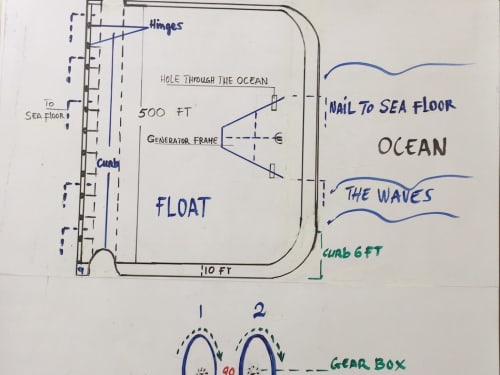 Hinges
HOLE THROUGH THE OCEAN
TO
SEA FLOOR
500 FT
NAIL TO SEA FLOOR
GENERATOR FRAME
OCEAN
Curb
THE WAVES
FLOAT
CURB 6FT
10 FT
1
2
90
GEAR BOX